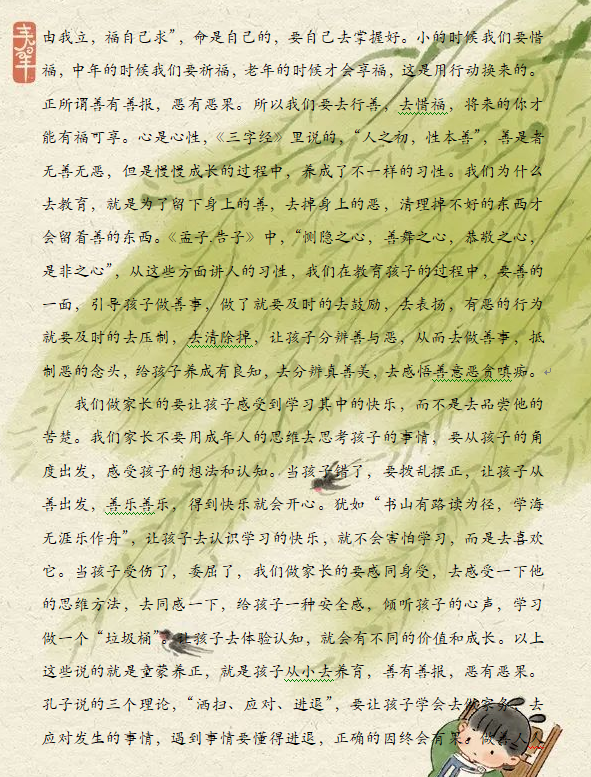 由我立，福自己求”，命是自己的，要自己去掌握好。小的时候我们要惜
福，中年的时候我们要祈福，老年的时候才会享福，这是用行动换来的。
正所谓善有善报，恶有恶果。所以我们要去行善，去惜福，将来的你才
能有福可享。心是心性，《三字经》里说的，“人之初，性本善”，善是者
无善无恶，但是慢慢成长的过程中，养成了不一样的习性。我们为什么
去教育，就是为了留下身上的善，去掉身上的恶，清理掉不好的东西才
会留着善的东西。《孟子.告子》中，“恻隐之心，善舞之心，恭敬之心，
是非之心”，从这些方面讲人的习性，我们在教育孩子的过程中，要善的
一面，引导孩子做善事，做了就要及时的去鼓励，去表扬，有恶的行为
就要及时的去压制，去清除掉，让孩子分辨善与恶，从而去做善事，抵
制恶的念头，给孩子养成有良知，去分辨真善美，去感悟善意恶贪嗔痴。
我们做家长的要让孩子感受到学习其中的快乐，而不是去品尝他的
苦楚。我们家长不要用成年人的思维去思考孩子的事情，要从孩子的角
度出发，感受孩子的想法和认知。当孩子错了，要拨乱摆正，让孩子从
善出发，善乐善乐，得到快乐就会开心。犹如“书山有路读为径，学海
无涯乐作舟”，让孩子去认识学习的快乐，就不会害怕学习，而是去喜欢
它。当孩子受伤了，委屈了，我们做家长的要感同身受，去感受一下他
的思维方法，去同感一下，给孩子一种安全感，倾听孩子的心声，学习
做一个“垃圾桶”。让孩子去体验认知，就会有不同的价值和成长。以上
这些说的就是童蒙养正，就是孩子从小去养育，善有善报，恶有恶果。
孔子说的三个理论，“洒扫、应对、进退”，要让孩子学会去做家务，去
应对发生的事情，遇到事情要懂得进退，正确的因终会有果，做善人